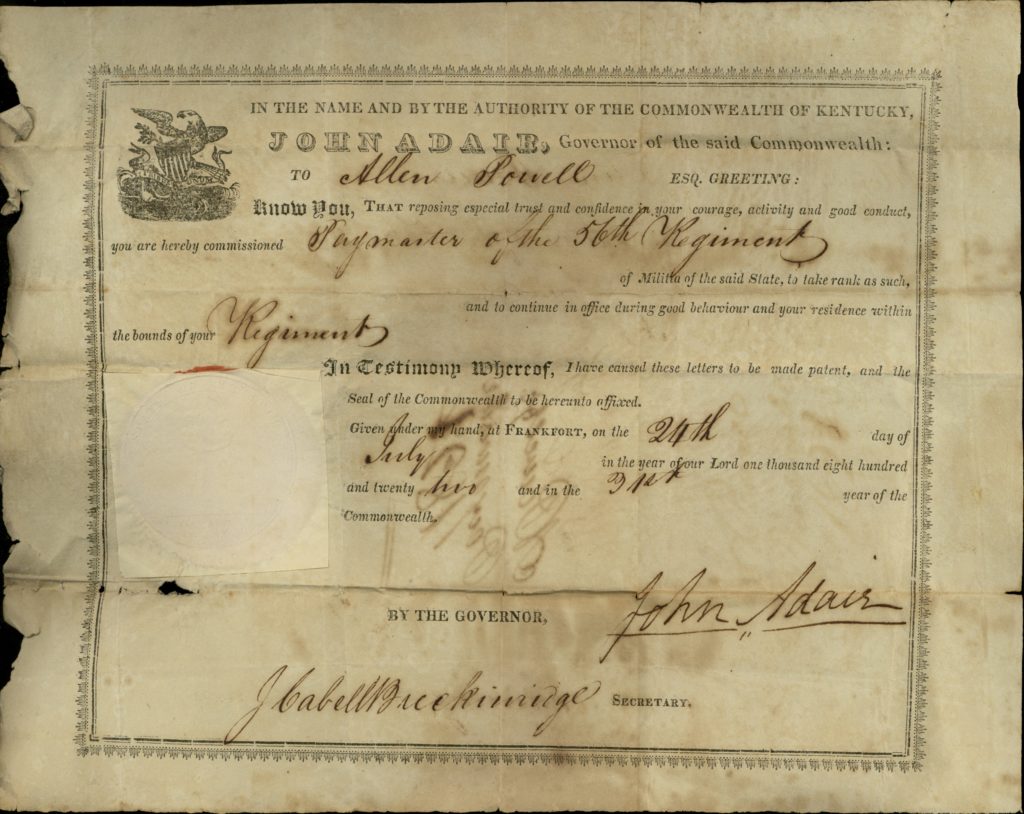 IN THE NAME AND BY THE AUTHORITY OF THE COMMONWEALTH OF KENTUCKY,
JOHN ADAIR, Governor of the said Commonwealth:
TO Allen Powell ESQ. GREETING:
Know You, THAT reposing especial trust and confidence in your courage, activity and good conduct,
you are hereby commissioned Paymaster of the 56th Regiment
of Militia of the said State, to take rank as such,
and to continue in office during good behaviour and your residence within
the bounds of your Regiment
In Testimony Whereof, I have caused these letters to be made patent, and the
Seal of the Commonwealth to be hereunto affixed.
Given under my hand, at FRANKFORT, on the 24th day of
July in the year of our Lord one thousand eight hundred
and twenty two and in the 31st year of the
Commonwealth.
John Adair
BY THE GOVERNOR,
J Cabell Breckinridge SECRETARY.